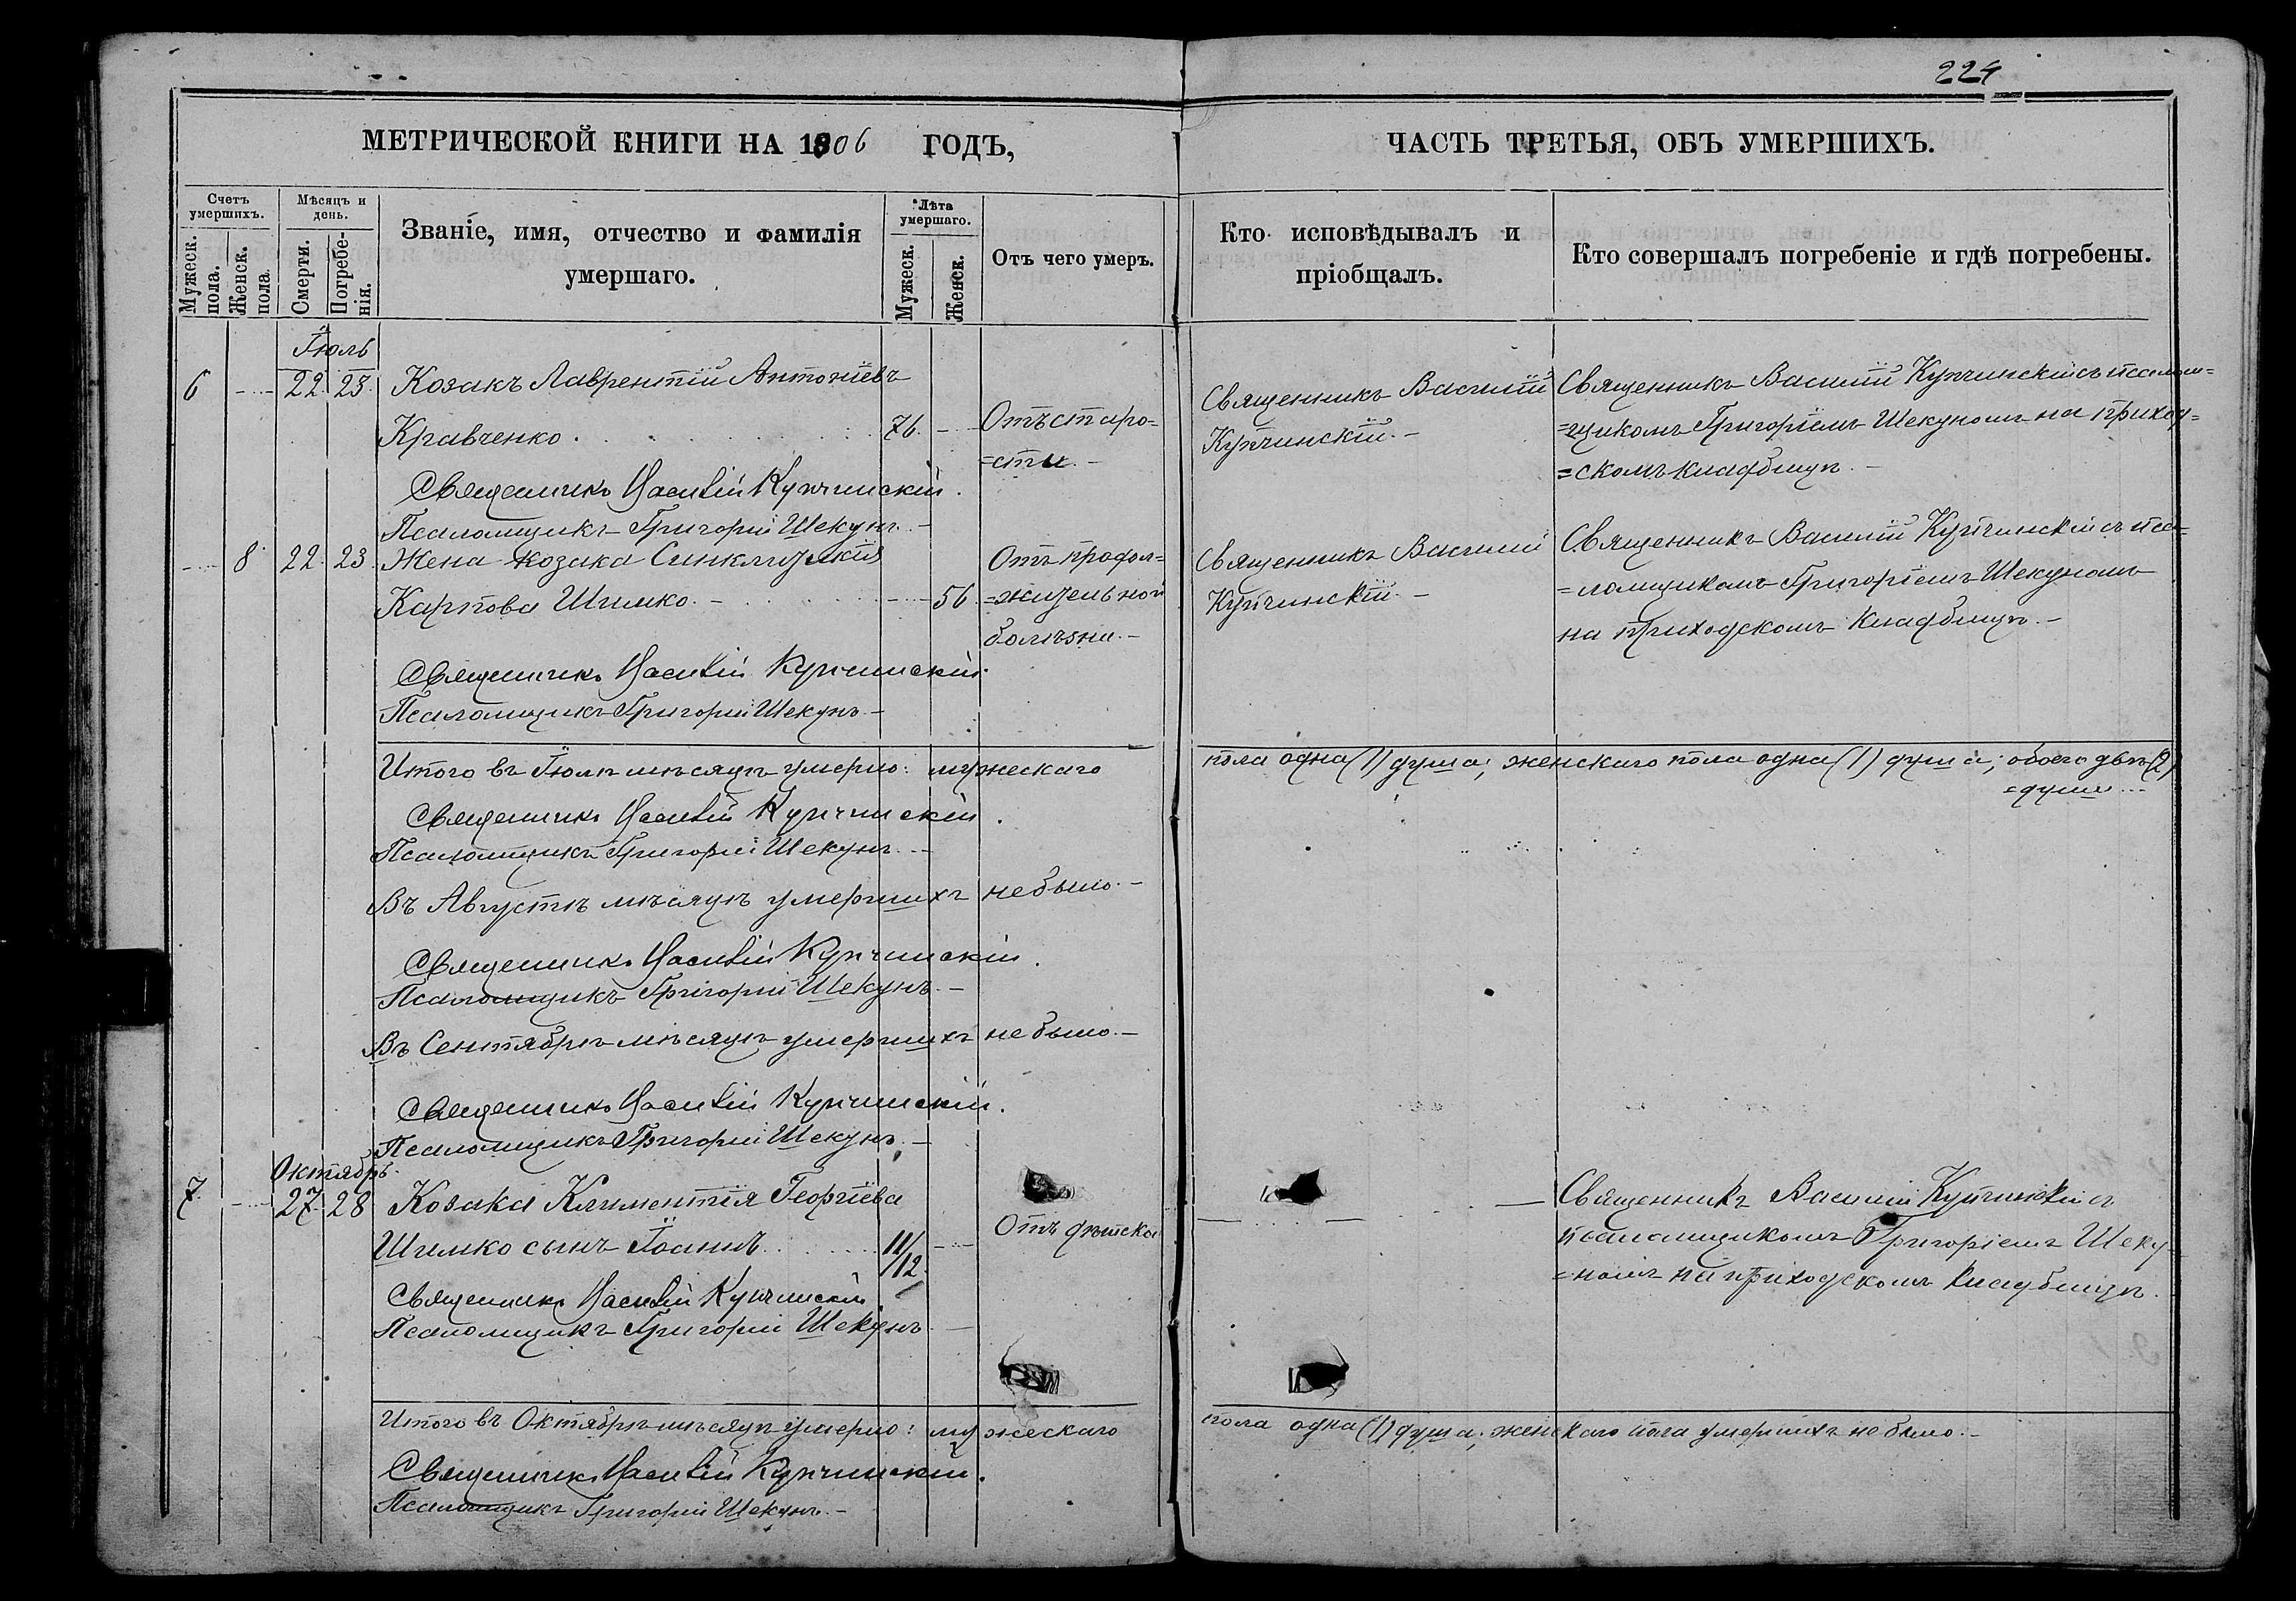 224
МЕТРИЧЕСКОЙ КНИГИ НА 1906 ГОДЪ,
ЧАСТЬ ТРЕТЬЯ, ОБЪ УМЕРШИХЪ.
Счетъ умершихъ.
Мужеск. пола.
Женск. пола
Мѣсяцъ и день.
Смерти.
Погребе-
нія.
Званіе, имя, отчество и фамилія
умершаго.
Лѣта умершаго.
Мужеск.
Женск.
Отъ чего умеръ.
Кто исповѣдывалъ и
пріобщалъ.
Кто совершалъ погребеніе и гдѣ погребены.
Іюль
6 22 23 Козакъ Лаврентій Антоніевъ
Кравченко. 76.
Отъ старо=
=сти.-
Священникъ Василій
Купчинскій.-
Священникъ Василій Купчинскій съ псалом=
=щикомъ Григоріемъ Шекуномъ на приход=
=скомъ кладбищѣ.-
Священникъ Василій Купчинскій.
Псаломщикъ Григорій Шекунъ.-
8 22 23 Жена козака Синклитикія
Карпова Шимко.- 56
Отъ продол=
=жительной
болѣзни.-
Священникъ Василій
Купчинскій.-
Священникъ Василій Купчинскій съ пса=
=ломщикомъ Григоріемъ Шекуномъ
на приходскомъ кладбищѣ.-
Священникъ Василій Купчинскій.
Псаломщикъ Григорій Шекунъ.-
Итого въ Іюлѣ мѣсяцѣ умерло: мужескаго пола одна (1) душа; женскаго пола одна (1) душа; обоего двѣ (2)
=души...
Священникъ Василій Купчинскій.
Псаломщикъ Григорій Шекунъ.-
Въ Августѣ мѣсяцѣ умершихъ не было.-
Священникъ Василій Купчинскій.
Псаломщикъ Григорій Шекунъ.-
Въ Сентябрѣ мѣсяцѣ умершихъ не было.-
Священникъ Василій Купчинскій.
Псаломщикъ Григорій Шекунъ.-
Октябрь.
7 27 28 Козака Климентія Георгіева
Шимко сынъ Іоаннъ. 11/12
Отъ
Священникъ Василій Купчинскій съ
псаломщикомъ Григоріемъ Шеку=
=номъ на приходскомъ кладбищѣ.
Священникъ Василій Купчинскій
Псаломщикъ Григорій Шекунъ.-
Итого въ Октябрѣ мѣсяцѣ умерло: мужескаго пола одна (1) душа; женскаго пола умершихъ не было.-
Священникъ Василій Купчинскій.
Псаломщикъ Григорій Шекунъ.-